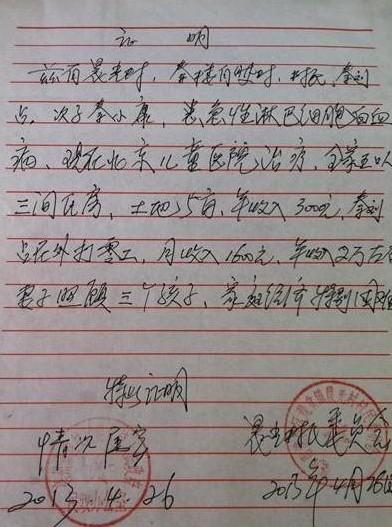 证 明
兹有晨光村，秦楼自然村，村民，秦刘
占。次子秦小康，患急性淋巴细胞白血
病、现在北京儿童医院治疗，全家五口人
三间瓦房，土地5亩，年收入3000元，秦刘
占在外打零工，月收入1600元，年收入2万左右
妻子照顾三个孩子、家庭经济特别困难
特此证明
情况属实
2013.4.26
晨光村民委员会
2013年4月26日